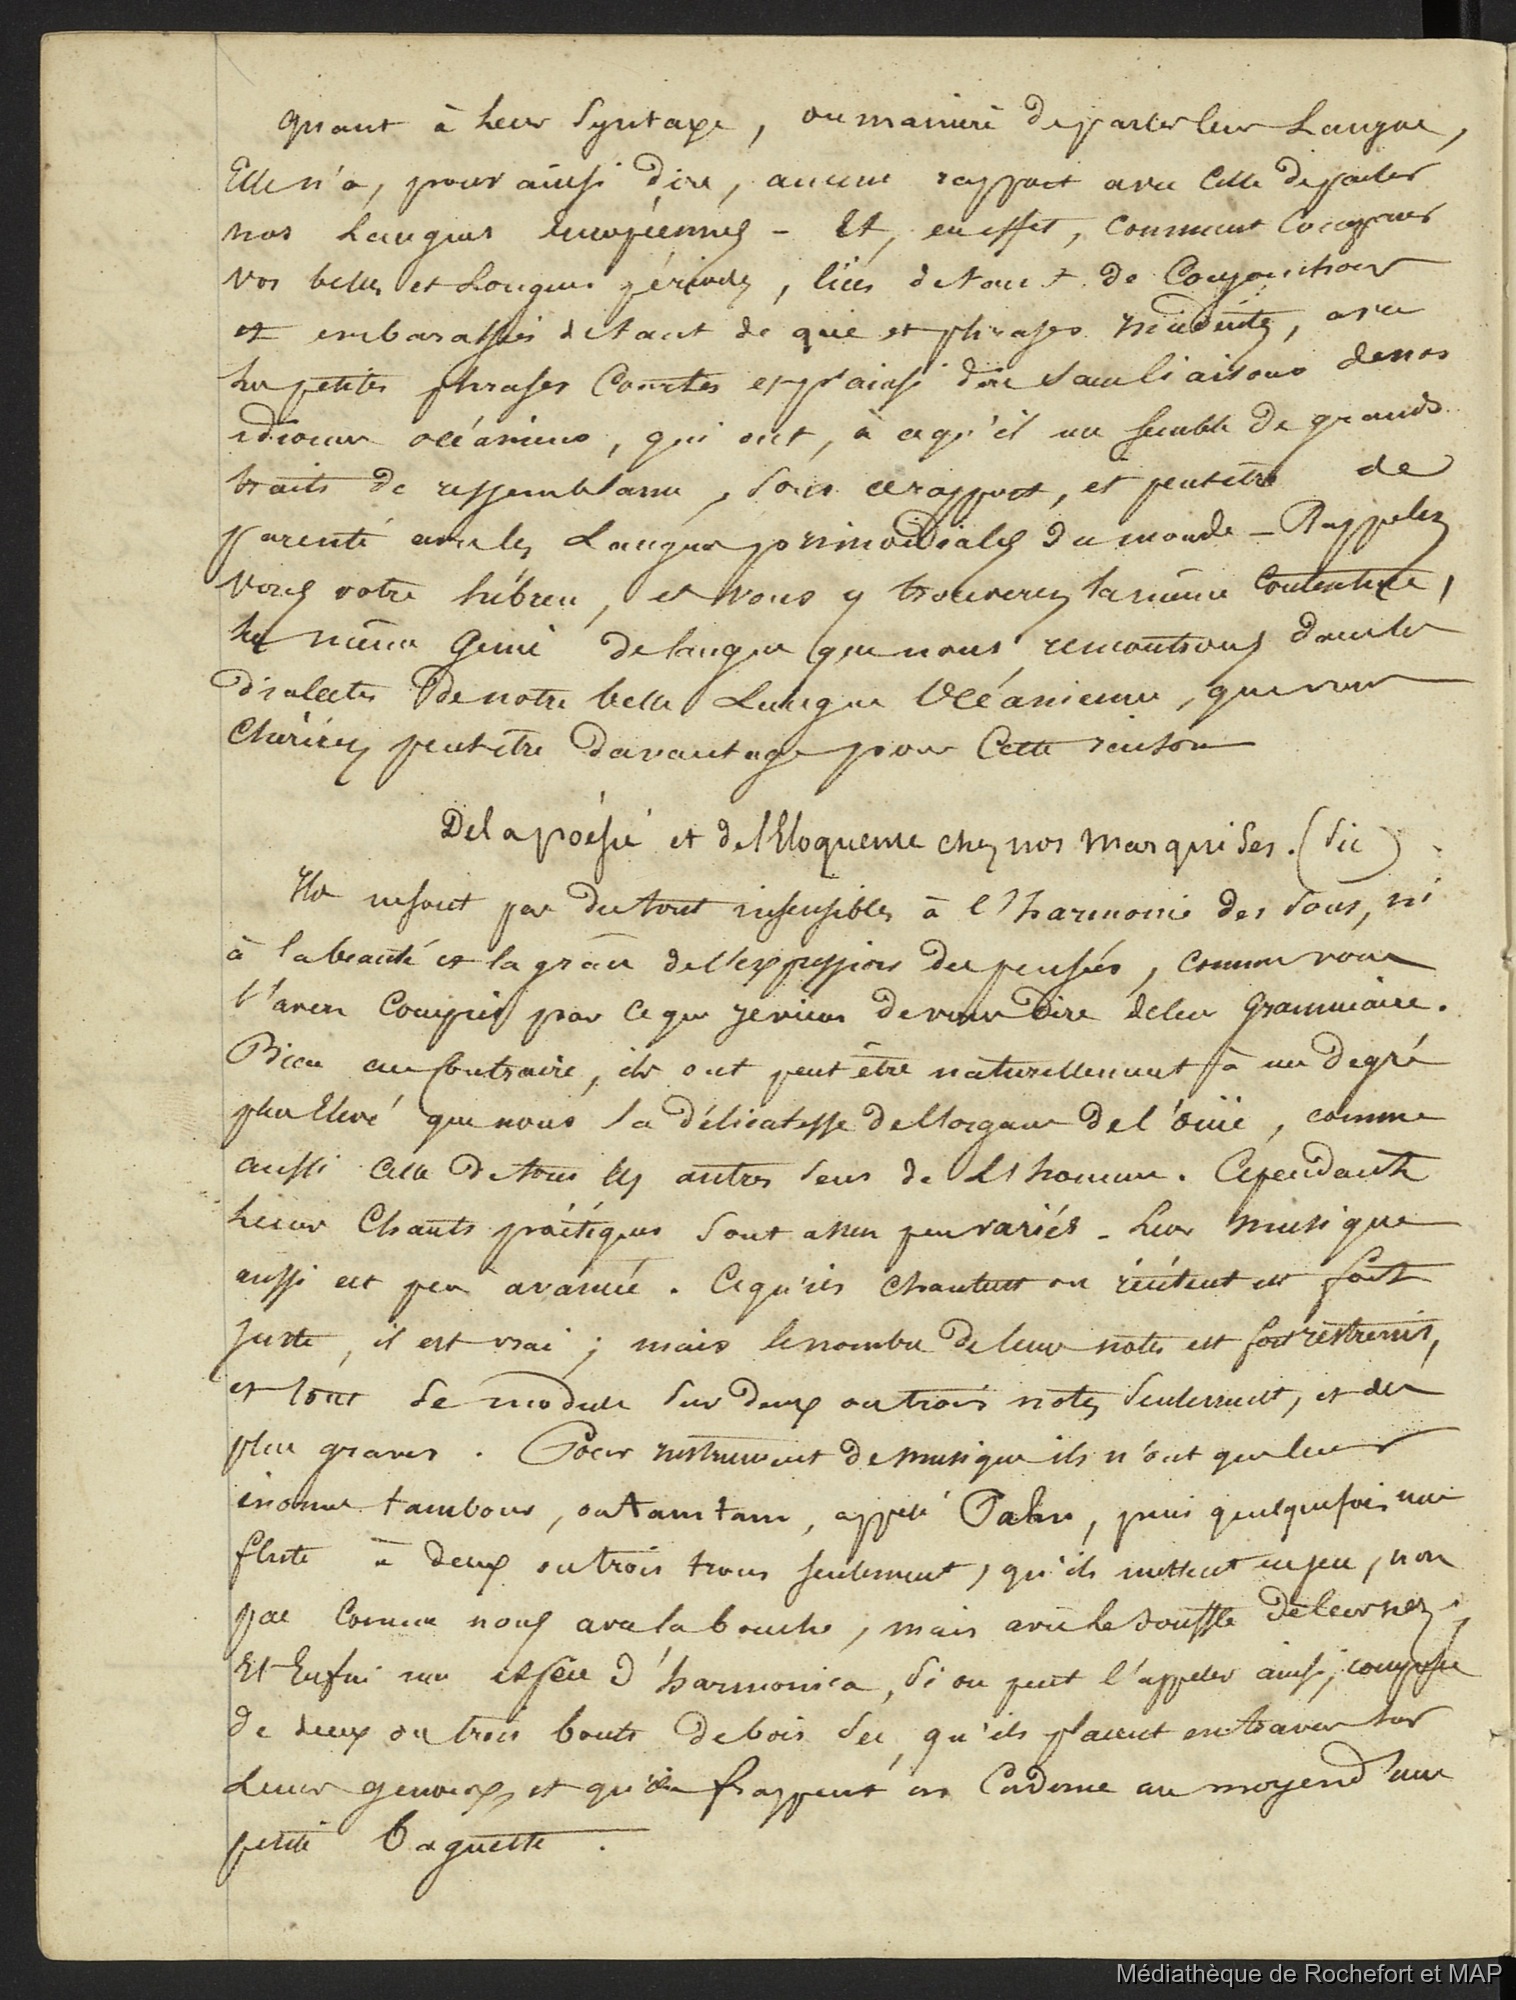 Quant à leur Syntaxe, ou manière de parler leur Langue,
Elle n'a, pour ainsi dire, aucun rapport avec Celle de parler
nos Langues Européennes - Et, en effet, comment Comparer
vos belles et Longues périodes, liées de tant de Conjonctions
et embarassées de tant de que et phrases incidentes, avec
les petites phrases Courtes et pr ainsi dire sans liaisons de nos
idiomes océaniens, qui ont, à ce qu'il me semble de grands
traits de ressemblance, sous ce rapport, et peutêtre de
parenté avec les Langues primordiales du monde - Rappelez
vous votre hébreu, et vous y trouverez la même Contexture,
le même Génie de langue que nous rencontrons dans les
dialectes de notre belle Langue Océanienne, que vous
Chérirez peutêtre davantage pour Cette raison
De la poésie et de l'Eloquence chez nos Marquises. (sic)
Ils ne sont pas du tout insensibles à l'harmonie des sons, ni
à la beauté et la grâce de l'expression des pensées, comme vous
l'avez Compris par ce que je viens de vous dire de leur Grammaire.
Bien au Contraire, ils ont peut être naturellement à un degré
plus Elevé que nous la délicatesse de l'organe de l'ouïe, comme
aussi celle de tous les autres sens de l'homme. Cependant
leurs Chants poétiques sont assez peu variés - leur musique
aussi est peu avancée. Ce qu'ils chantent ou récitent est fort
juste, il est vrai ; mais le nombre de leurs notes est fort restreint,
et tout se module sur deux ou trois notes seulement, et des
plus graves. Pour instrument de musique ils n'ont que leur
énorme tambour, ou tam tam, appelé Pahu, puis quelquefois une
flute à deux ou trois trous seulement, qu'ils mettent en jeu, non
pas comme nous avec la bouche, mais avec le souffle de leur nez ;
Et Enfin une espèce d'harmonica, si on peut l'appeler ainsi, composé
de deux ou trois bouts de bois sec, qu'ils placent en travers sur
Leurs genoux, et qu'ils frappent en Cadence au moyen d'une
petite baguette.
Médiathèque de Rochefort et MAP